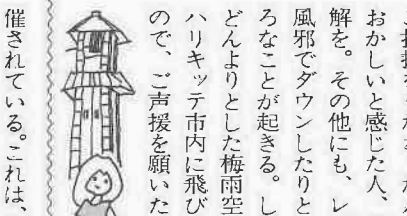 おかしいと感じた人、
解を。その他にも、レ
風邪でダウンしたりと
ろなことが起きる。し
どんよりとした梅雨空
ハリキッテ市内に飛び
ので、ご声援を願いた
催されている。これは、